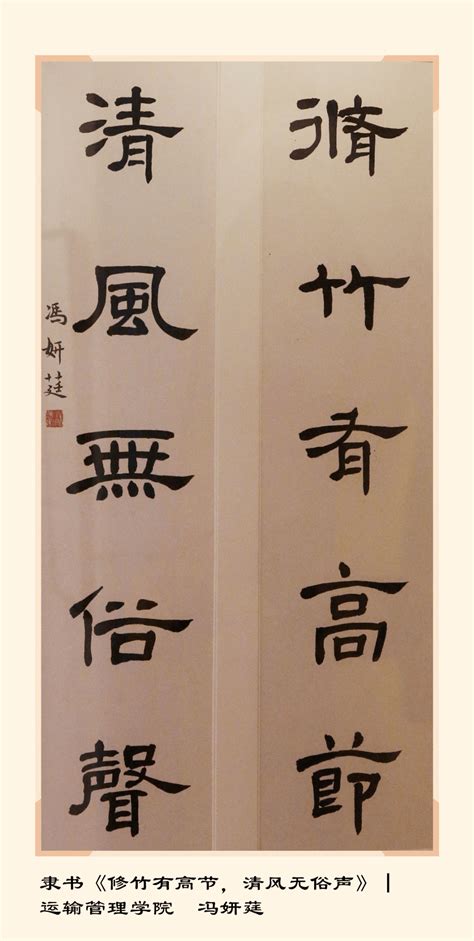 脩竹有高節
清風無俗聲
馮妍莛
隶书《修竹有高节，清风无俗声》|
运输管理学院　冯妍莛